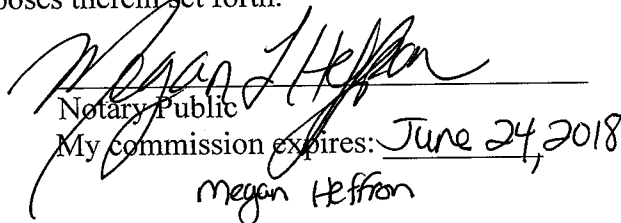 poses therein set forth.
Megan L Heffron
Notary Public
My commission expires: June 24, 2018
Megan Heffron